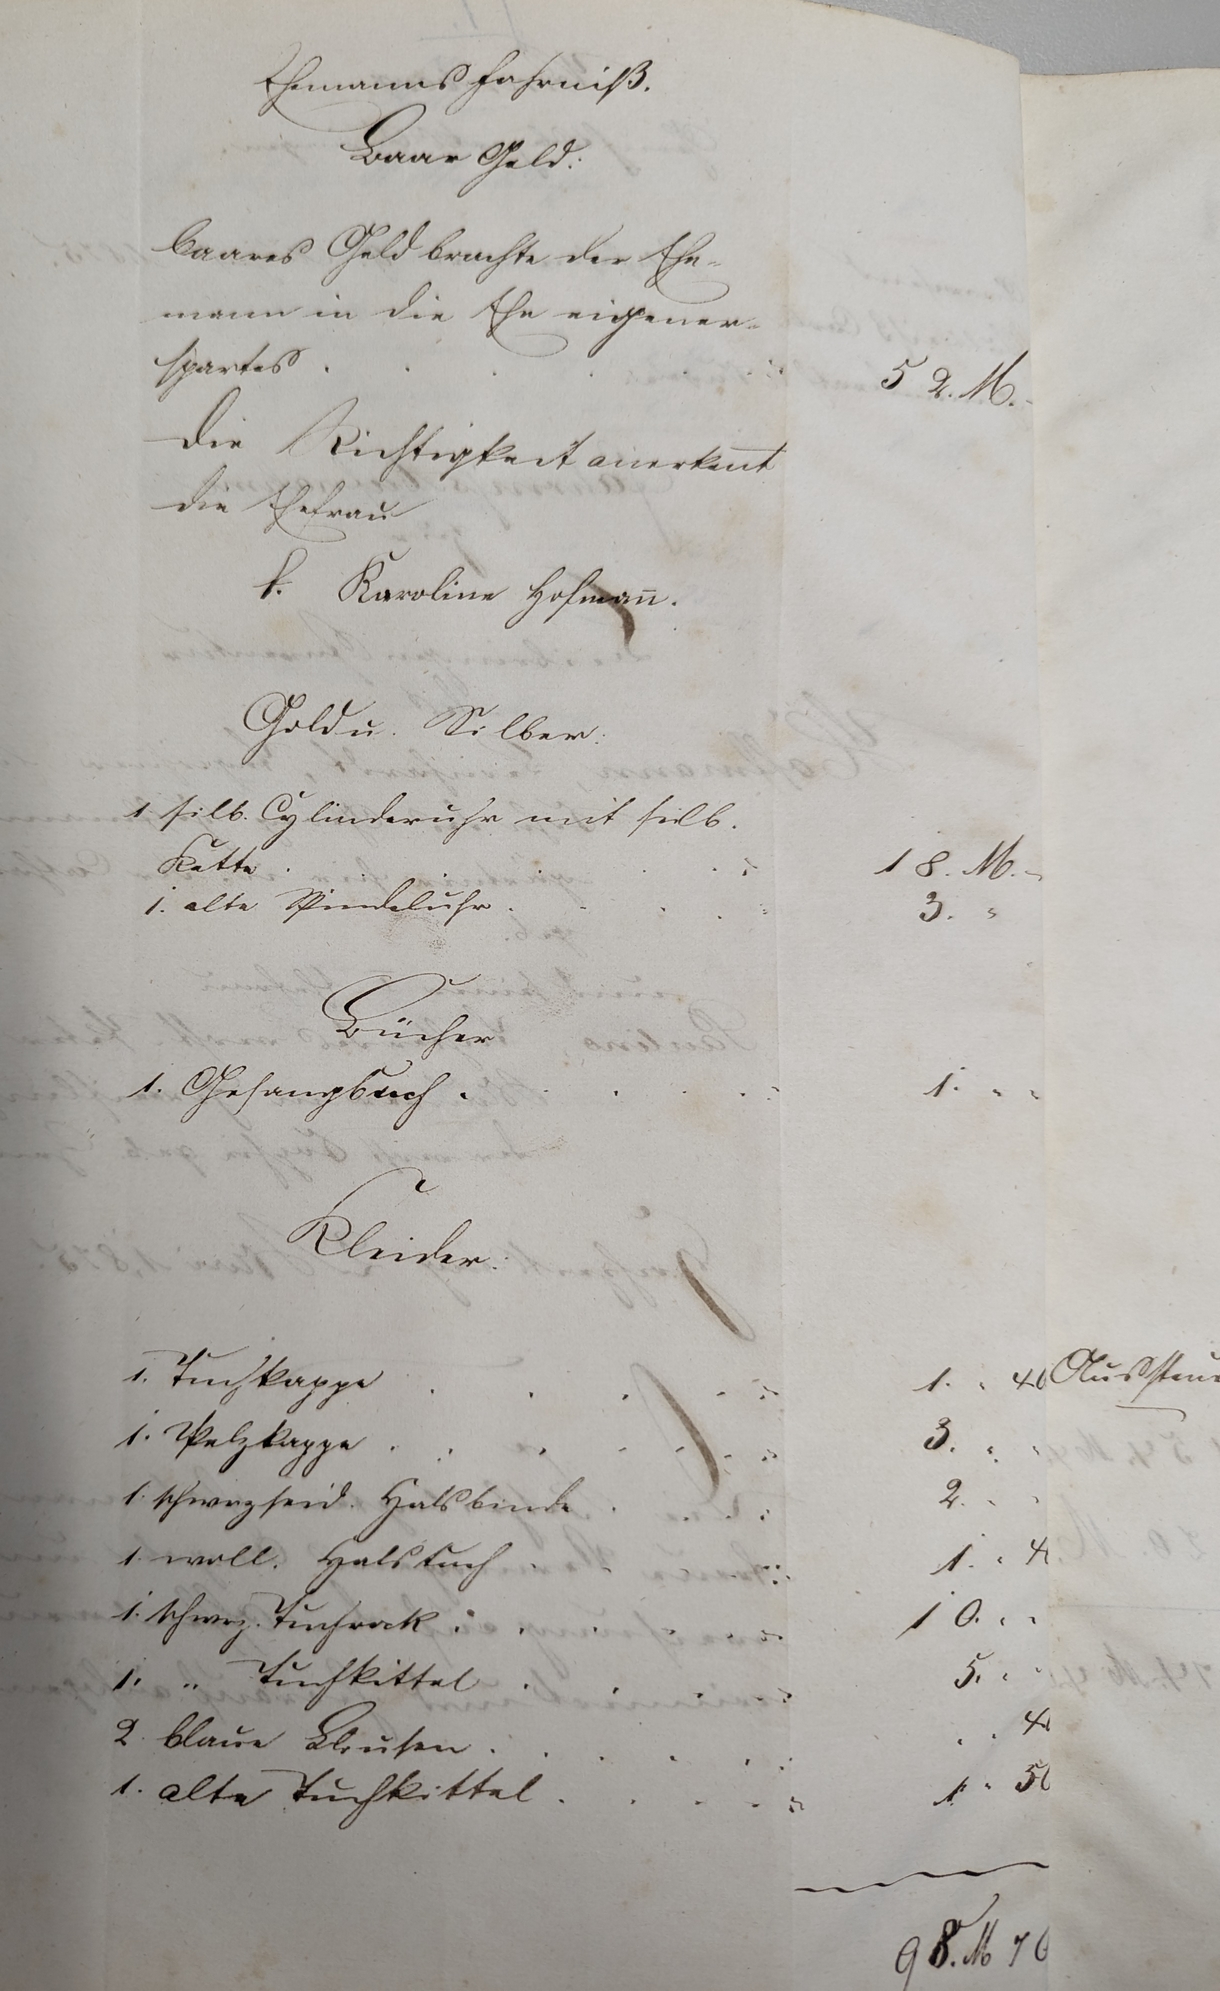 Ehemanns Fahrniß.
Baar Geld:
baares Geld brachte der Ehe-
mann in die Ehe eigener-
spartes . . . . 52. M. -
Die Richtigkeit anerkennt
die Ehefrau
t. Karoline Hofmañ.
Gold u. Silber:
1 silb. Cylinderuhr mit silb.
Kette . . . 18. M. -
1. alte Spindeluhr . . . 3. "
Bücher
1. Gesangbuch . . . . 1. " "
Kleider:
1. Tuchkappe . . . . 1. " 40
1. Pelzkappe . . . . 3. " "
1. schwrzseid. Halsbinde . . 2. " "
1. woll. Halstuch . . 1. " 4
1. schwrz. Tuchrock . . . 10. " "
1. " Tuchkittel . . . . 5. " "
2 blaue Blousen . . . . . " " 4
1. alte Tuchkittel . . . . 1. " 50
98. M 70
Aussteu